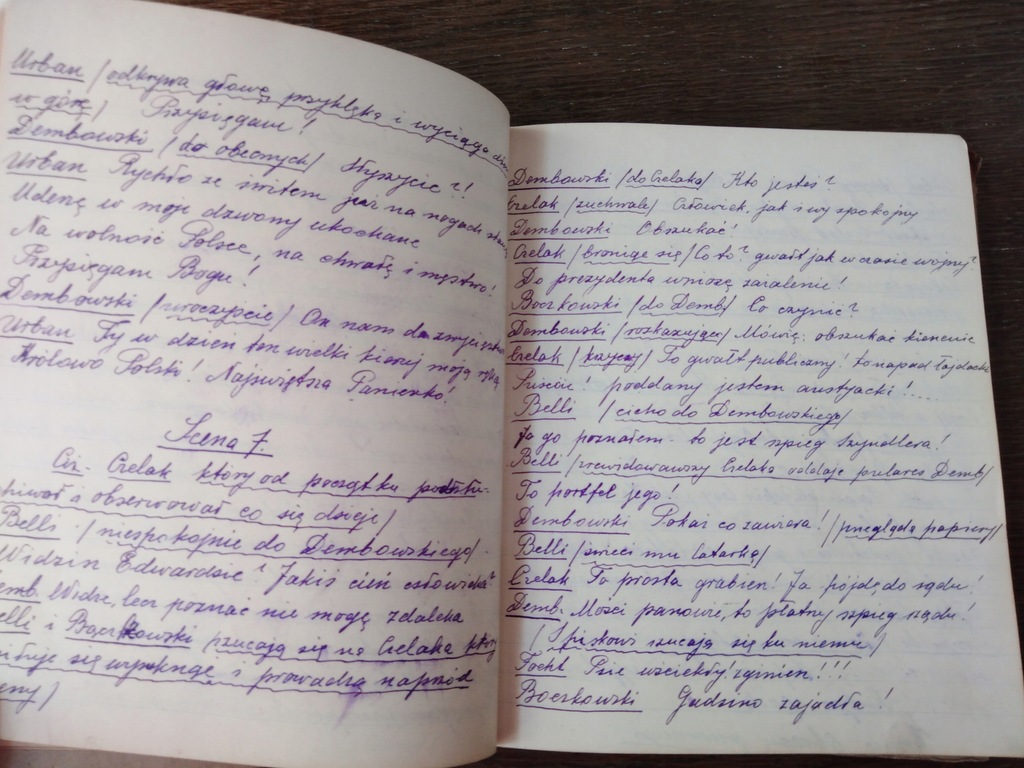 Urban /odkrywa głowę, przyklęka i wyciąga
w górę/ Przysięgam!
Dembowski /do obecnych/ Słyszycie?!
Urban Rychło ze świtem już na nogach
Uderzę w moje dzwony ukochane
Na wolność Polsce, na chwałę i męstwo!
Przysięgam Bogu!
Dembowski /uroczyście/ On nam da
Urban Ty w dzień ten wielki kieruj moją ręką
Królowo Polski! Najświętsza Panienko!
Scena 7.
Ciż - Czelak który od początku
i obserwował co się dzieje/
Belli /niespokojnie do Dembowskiego/
Widzisz Edwardzie? Jakiś cień człowieka?
Demb. Widzę, lecz poznać nie mogę zdaleka
Belli i Boczkowski rzucają się na Czelaka który
się wymknąć i prowadzą naprzód
sceny/
Dembowski /do Czelaka/ Kto jesteś?
Czelak /zuchwale/ Człowiek, jak i wy spokojny
Dembowski Obszukać!
Czelak /broniąc się/ Co to? gwałt jak w czasie wojny?
Do prezydenta wniosę zażalenie!
Boczkowski /do Demb/ Co czynić?
Dembowski /rozkazująco/ Mówię: obszukać kieszenie
Czelak /krzyczy/ To gwałt publiczny! to napad łajdacki
Puśćcie! poddany jestem austyjacki!...
Belli /cicho do Dembowskiego/
Ja go poznałem - to jest szpieg Szyndlera!
Belli /zrewidowawszy Czelaka oddaje pulares Demb/
To portfel jego!
Dembowski Pokaż co zawiera! /przegląda papiery/
Belli /świeci mu latarką/
Czelak To prosta grabież! Ja pójdę do sądu!
Demb. Mości panowie, to płatny szpieg rządu!
/Spiskowi rzucają się ku niemu/
Focht Psie wściekły! zginiesz!!!
Boczkowski Gadzino zajadła!